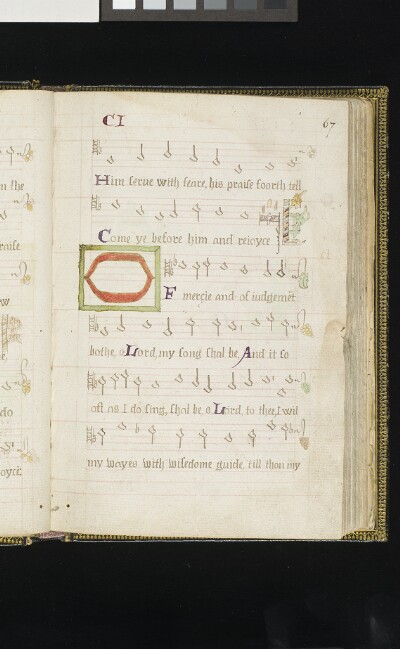 CI
67
Him serue with feare, his praise foorth tell
Come ye before him and reioyce
OF mercie and of iudgemēt
bothe, o Lord, my song shal be, And it so
oft as I do sing, shal be, o Lord, to thee, I wil
my wayes with wisedome guide, till thou my
n the
raise
w
e
do
oyce